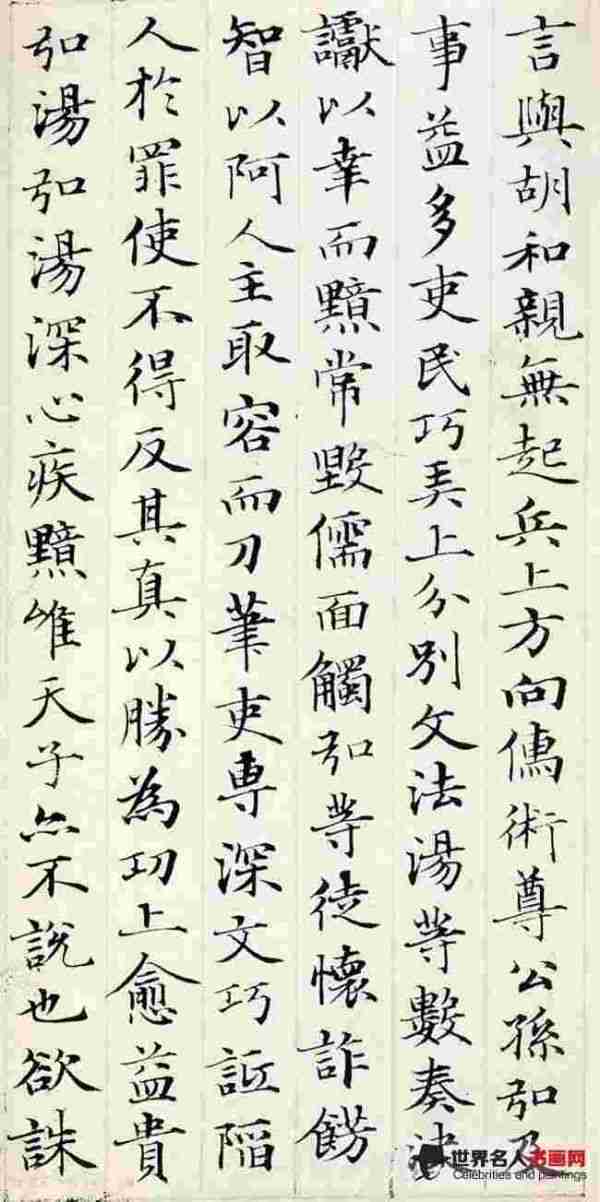 言與胡和親無起兵上方向儒術尊公孫弘及
事益多吏民巧弄上分別文法湯等數奏決
讞以幸而黯常毀儒面觸弘等徒懷詐飾
智以阿人主取容而刀筆吏専深文巧詆陷
人於罪使不得反其真以勝為功上愈益貴
弘湯弘湯深心疾黯唯天子亦不說也欲誅
世界名人书画网
Celebrities and paintings